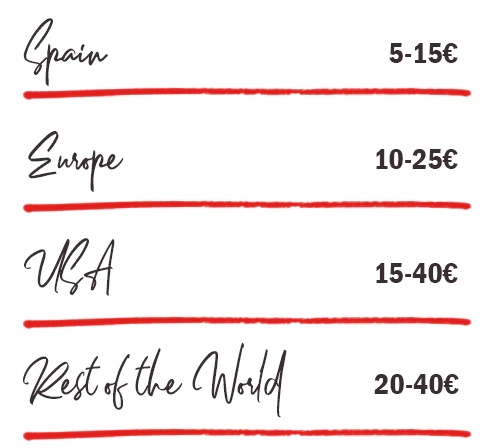 Spain 5-15€
Europe 10-25€
USA 15-40€
Rest of the World 20-40€